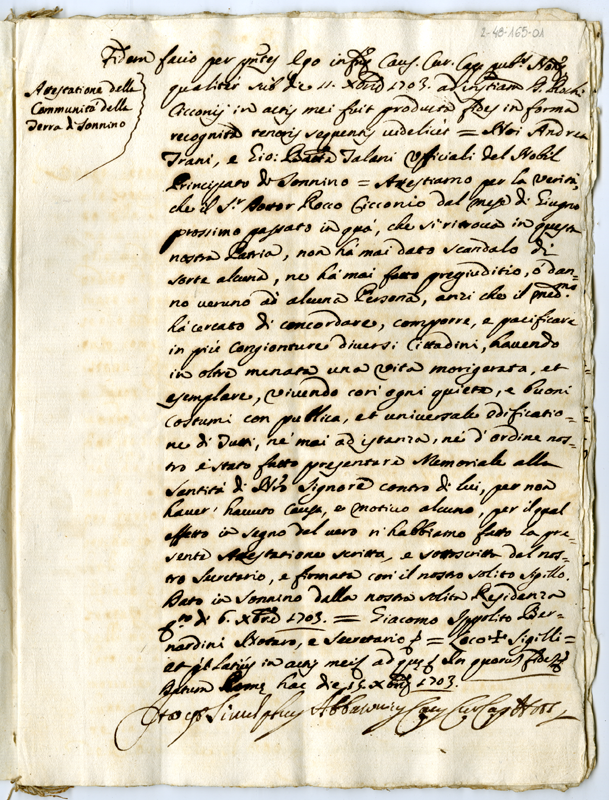 2-48-165-01
Fidem facio per pntes Ego infrus Caus. Cur. Cap. pubs Notus
qualiter sub die 11 Xbris 1703. ad instiam D. Rochi
Attestatione della
Communità della
Terra di Sonnino
Cicconij in actis mei fuit producta fides in forma
recognita tenoris sequentis videlicet = Noi Andrea
Trani, e Gio: Batta Talani Officiali del Nobil
Principato di Sonnino = Attestiamo per la verità,
che il Sr Dottor Rocco Cicconio dal mese di Giugno
prossimo passato in quà, che si ritrova in questa
nostra Patria, non hà mai dato scandalo di
sorte alcuna, ne hà mai fatto pregiuditio, ò dan=
no veruno ad alcuna Persona, anzi che il medmo
hà cercato di concordare, comporre, e pacificare
in più congionture diversi Cittadini, havendo
in oltre menata una vita morigerata, et
esemplare, vivendo con ogni quiete, e buoni
costumi con publica, et universale edificatio=
ne di Tutti, ne mai ad istanza, ne d'ordine nos=
tro è stato fatto presentare Memoriale alla
Santità di Nro Signore contro di lui, per non
haver havuto causa, e motivo alcuno, per il qual
effetto in segno del vero ni habbiamo fatto la pre=
sente Attestatione scritta, e sottoscritta dal nos=
tro Secretario, e firmata con il nostro solito Sigillo.
Dato in Sonnino dalla nostra solita Residenza
di 6. Xbre 1703. = Giacomo Ippolito Ber=
nardini Notaro, e Secretario = Loco + Sigilli =
et latius in actis meis ad quos In quorum fidem
Datum Rome hac die 15 Xbris 1703.